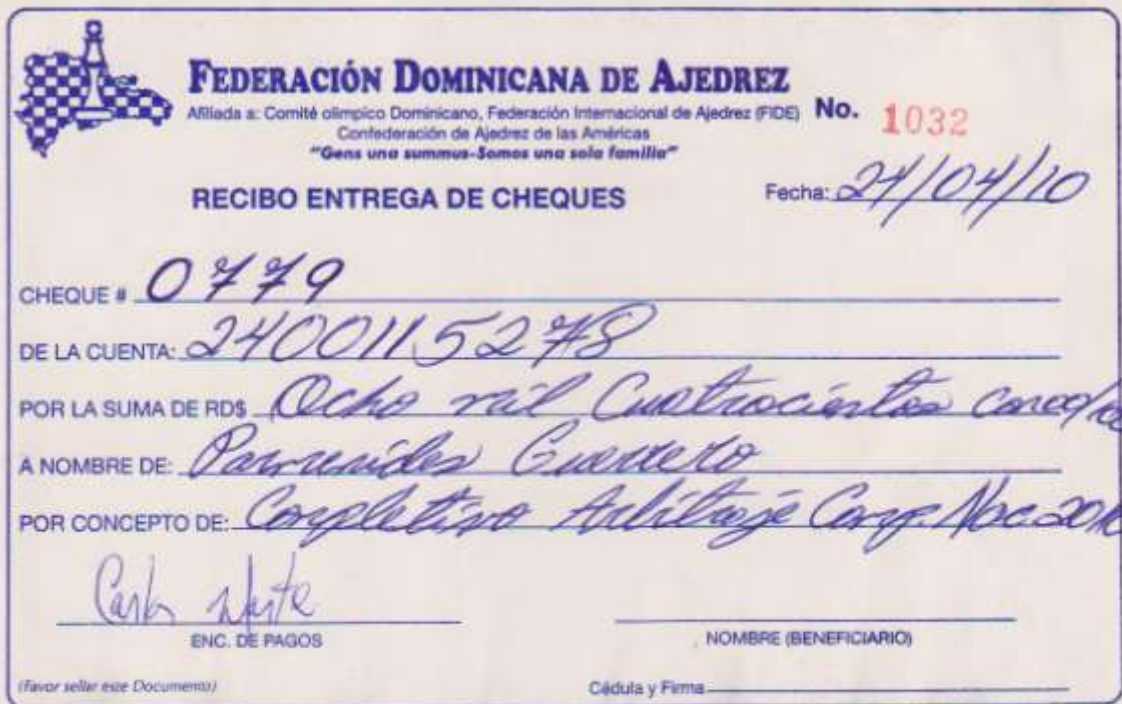 FEDERACIÓN DOMINICANA DE AJEDREZ
Afiliada a: Comité olimpico Dominicano, Federación Internacional de Ajedrez (FIDE) No. 1032
Confederación de Ajedrez de las Américas
"Gens una summus-Somos una sola familia"
RECIBO ENTREGA DE CHEQUES Fecha: 24/04/10
CHEQUE # 0779
DE LA CUENTA: 2400115278
POR LA SUMA DE RD$ Ocho mil Cuatrocientos con 00/100
A NOMBRE DE: Parmenides Guerrero
POR CONCEPTO DE: Completivo Arbitraje Camp. Nac. 2010
Carlos
ENC. DE PAGOS
NOMBRE (BENEFICIARIO)
(Favor sellar este Documento) Cédula y Firma